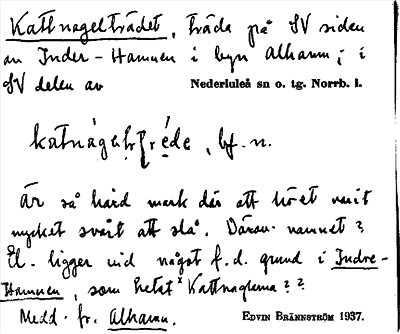 Kattnagelträdet, träda på SV sidan
av Inder-Hamnen i byn Alhamn; i
SV delen av Nederluleå sn o. tg. Norrb. l.
bf. n.
Är så hård mark där att höet varit
mycket svårt att slå. Därav namnet?
El. ligger vid något f.d. grund i Indre-
Hamnen, som hetat x Kattnaglarna??
Medd. fr. Alhamn. EDVIN BRÄNNSTRÖM 1937.